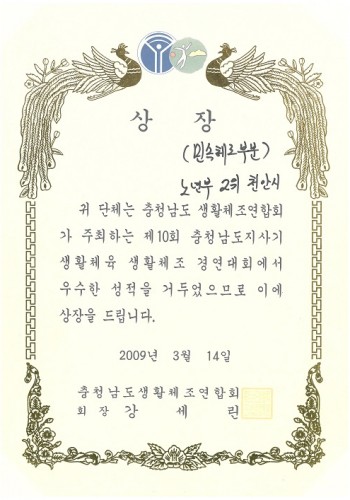 상 장
(민속체조부분)
노년부 2위 천안시
귀 단체는 충청남도 생활체조연합회
가 주최하는 제10회 충청남도지사기
생활체육 생활체조 경연대회에서
우수한 성적을 거두었으므로 이에
상장을 드립니다.
2009년 3월 14일
충청남도생활체조연합회
회 장 강 세 린